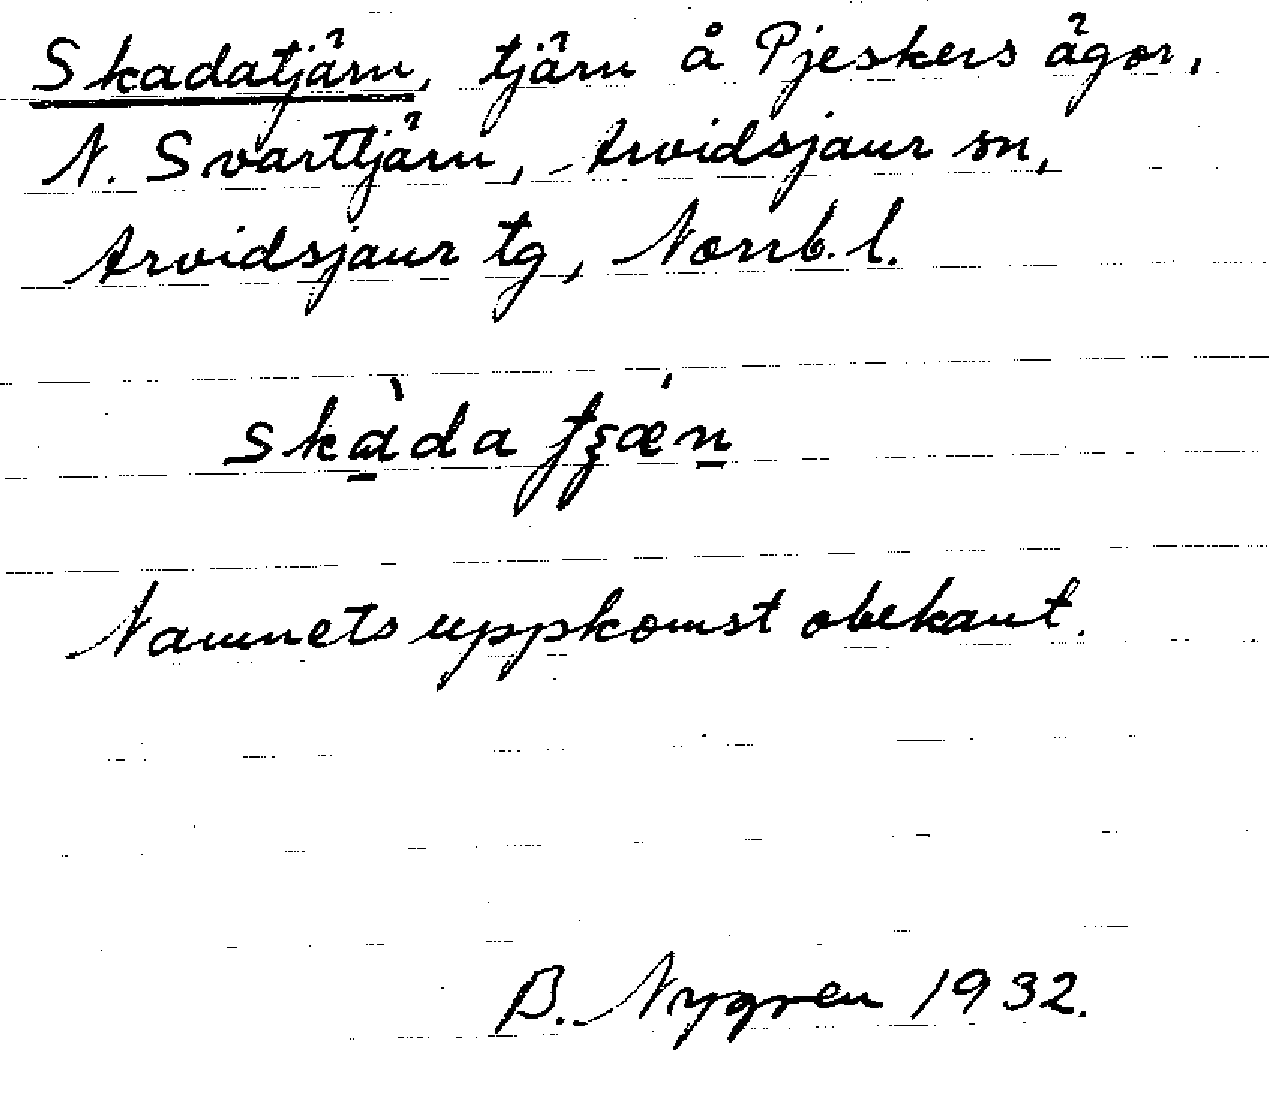 Skadatjärn, tjärn å Pjeskers ägor,
N. Svarttjärn, Arvidsjaur sn,
Arvidsjaur tg, Norrb. l.
skàda
Namnets uppkomst obekant.
B. Nygren 1932.